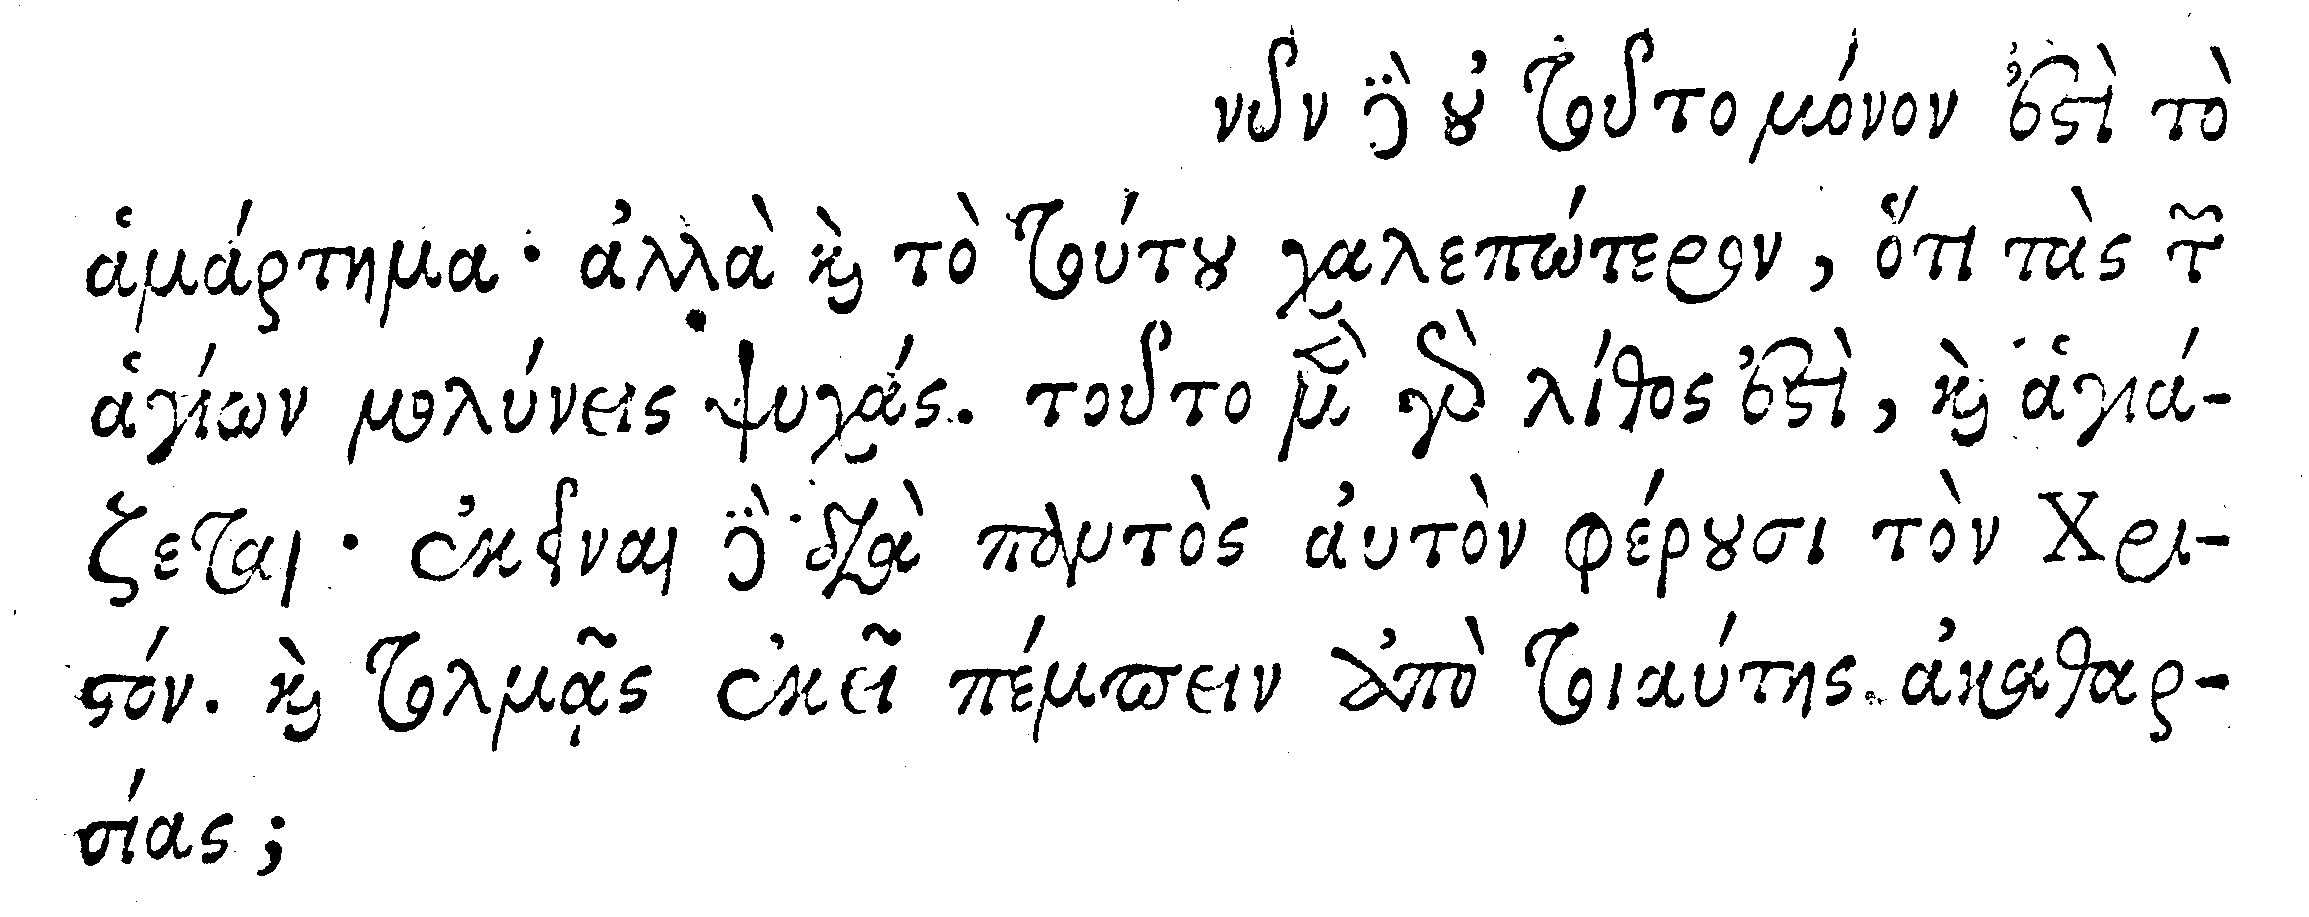 νῦν δὲ οὐ τοῦτο μόνον ἐστὶ τὸ
ἁμάρτημα· ἀλλὰ καὶ τὸ τούτου χαλεπώτερον, ὅτι τὰς τῶν
ἁγίων μολύνεις ψυχάς. τοῦτο μὲν γὰρ λίθος ἐστὶ, καὶ ἁγιά-
ζεται· ἐκεῖναι δὲ διὰ παντὸς αὐτὸν φέρουσι τὸν Χρι-
στόν. καὶ τολμᾷς ἐκεῖ πέμπειν ἀπὸ τοιαύτης ἀκαθαρ-
σίας;